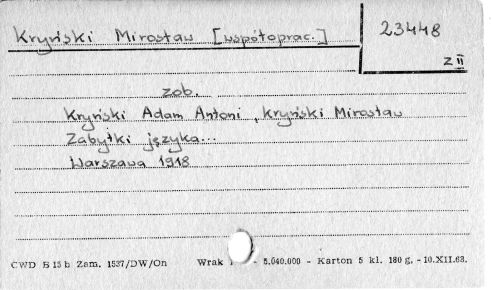 Kryński Mirosław [współoprac.]
23448
z II
zob.
Kryński Adam Antoni, Kryński Mirosław
Zabytki języka...
Warszawa 1918
CWD B 15 b Zam. 1537/DW/On Wrak - 5.040.000 - Karton 5 kl. 180 g. - 10.XII.68.